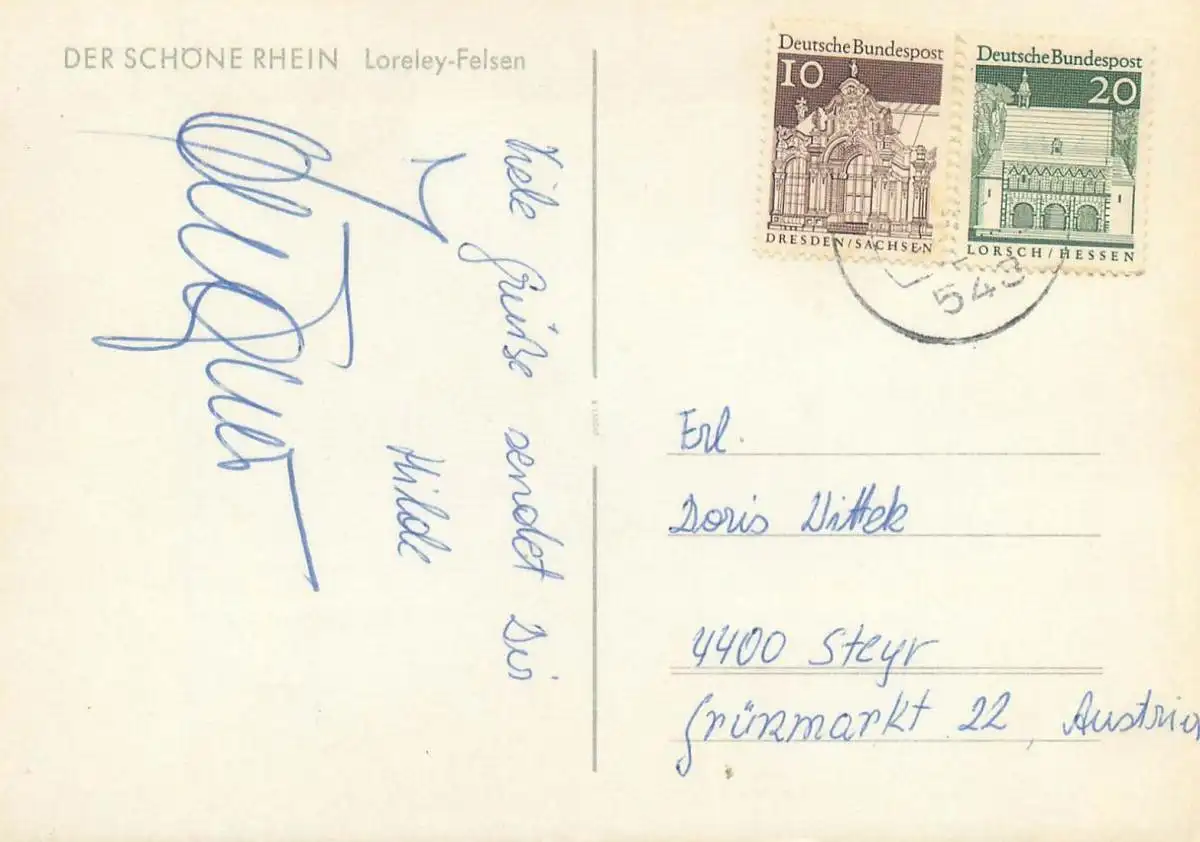 DER SCHÖNE RHEIN Loreley-Felsen
Viele Grüße sendet Dir
Hilde
Deutsche Bundespost
10
DRESDEN/SACHSEN
Deutsche Bundespost
20
LORSCH/HESSEN
543
Frl.
Doris Wittek
4400 Steyr
Grünmarkt 22, Austria